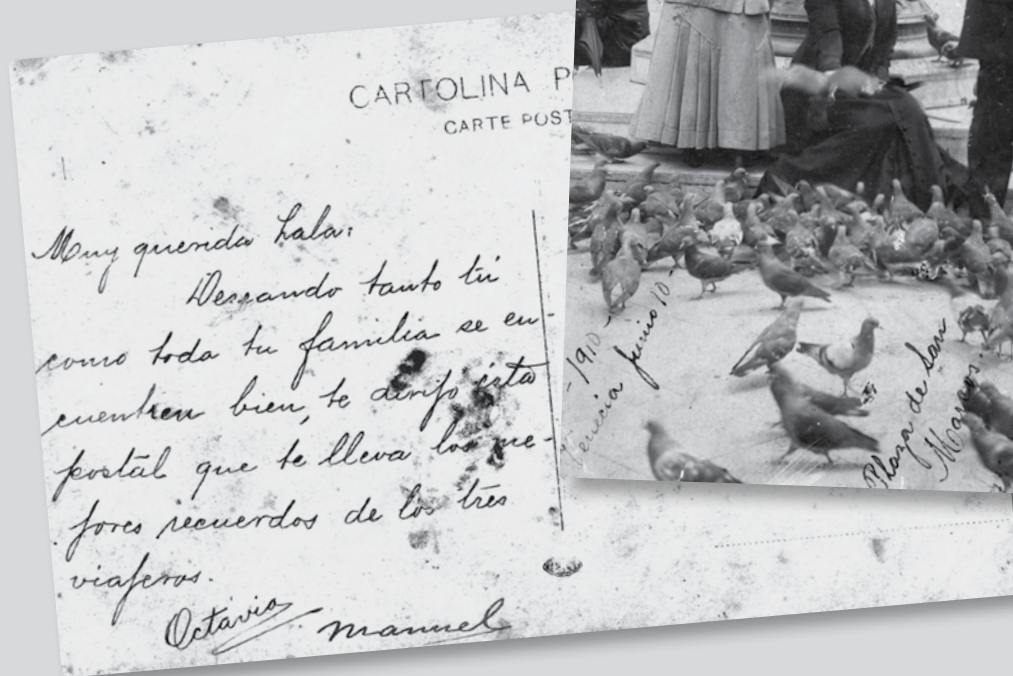 CARTOLINA P
CARTE POST
Muy querida Lala:
Deseando tanto tú
como toda tu familia se en-
cuentren bien, te dirijo ésta
postál que te lleva los me-
jores recuerdos de los trés
viajeros.
Octavio Manuel
-1910-
Venecia Junio 10
Plaza de San
Marcos.